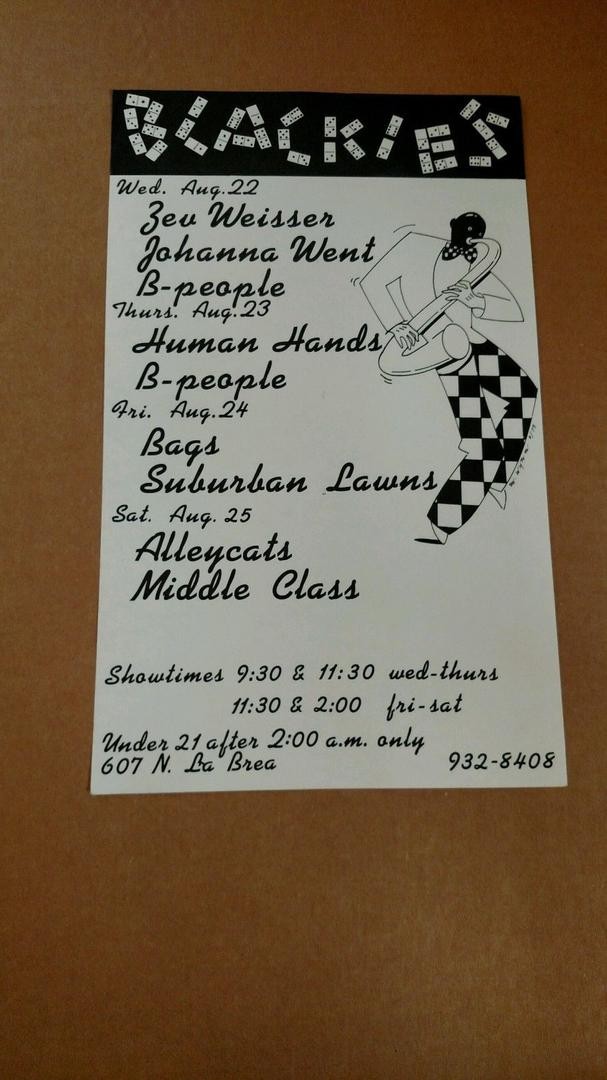 BLACKIES
Wed. Aug.22
Zev Weisser
Johanna Went
B-people
Thurs. Aug.23
Human Hands
B-people
Fri. Aug.24
Bags
Suburban Lawns
Sat. Aug. 25
Alleycats
Middle Class
Showtimes 9:30 & 11:30 wed-thurs
11:30 & 2:00 fri-sat
Under 21 after 2:00 a.m. only
607 N. La Brea 932-8408